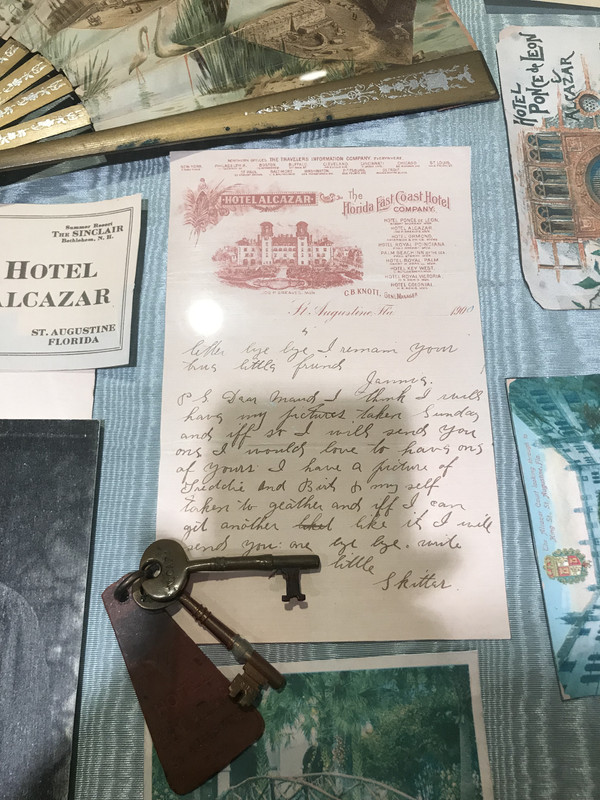 THE TRAVELERS INFORMATION COMPANY
NEW YORK. PHILADELPHIA BOSTON BUFFALO CLEVELAND CINCINNATI CHICAGO ST. LOUIS
BALTIMORE WASHINGTON PITTSBURG DETROIT
HOTEL ALCAZAR
The
Florida East Coast Hotel
COMPANY.
HOTEL PONCE DE LEON.
HOTEL ALCAZAR
HOTEL ORMOND
HOTEL ROYAL POINCIANA
PALM BEACH INN
HOTEL ROYAL PALM
HOTEL KEY WEST
HOTEL ROYAL VICTORIA
HOTEL COLONIAL
C.B. KNOTT, GEN'L MANAGER
St. Augustine, Fla 1900
4
letter bye bye I remain your
little friend
Jannie.
P S Dear Maud I think I will
have my pictures taken Sunday
and iff so I will send you
one I would love to have one
of yours I have a picture of
Freddie and Birt & my self
taken to geather and iff I can
git another like it I will
send you one bye bye. write
little
Skitter.
Summer Resort
THE SINCLAIR
Bethlehem, N. H.
HOTEL
ALCAZAR
ST. AUGUSTINE
FLORIDA
HOTEL
PONCE de LEON
&
ALCAZAR